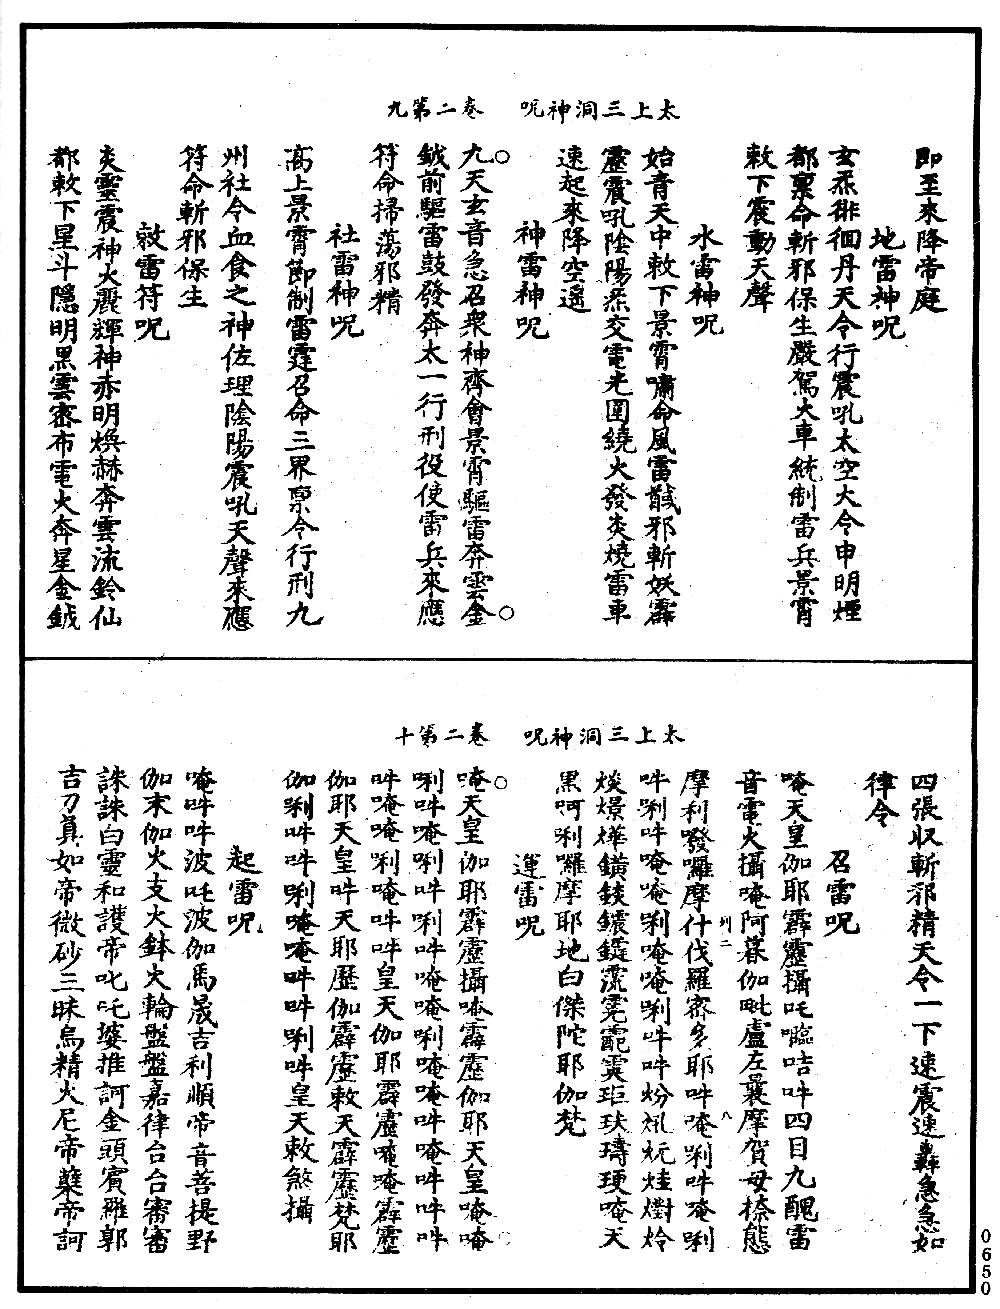 太上三洞神呪　卷二第九
即至來降帝庭
地雷神呪
玄炁徘徊丹天令行震吼太空大令申明煙
都稟命斬邪保生嚴駕火車統制雷兵景霄
敕下震動天聲
水雷神呪
始青天中敕下景霄嘯命風雷馘邪斬妖霹
靂震吼陰陽炁交電光圍繞火發炎燒雷車
速起來降空遙
神雷神呪
九天玄音急召衆神齊會景霄驅雷奔雲金
鉞前驅雷鼓發奔太一行刑役使雷兵來應
符命掃蕩邪精
社雷神呪
高上景霄節制雷霆召命三界稟令行刑九
州社令血食之神佐理陰陽震吼天聲來應
符命斬邪保生
敕雷符呪
炎靈震神火麗輝神赤明煥赫奔雲流鈴仙
都敕下星斗隱明黑雲密布電火奔星金鉞
太上三洞神呪　卷二第十
四張収斬邪精天令一下速震速轟急急如
律令
召雷呪
唵天皇伽耶霹靂攝吒嘔咭吽四目九醜雷
音電火攝唵阿暮伽毗盧左曩摩賀母㮈態
摩利發囉摩什伐羅密多耶吽唵唎吽唵唎
吽唎吽唵唵唎唵唵唎吽吽
唵天
黑呵唎囉摩耶地白傑陀耶伽梵
運雷呪
唵天皇伽耶霹靂攝唵霹靂伽耶天皇唵唵
唎吽唵唎吽唎吽唵唵唎唵唵吽唵吽吽吽
吽唵唵唎唵吽吽皇天伽耶霹靂唵唵霹靂
伽耶天皇吽天耶歷伽霹靂敕天霹靂梵耶
伽唎吽吽唎唵唵吽吽唎吽皇天敕煞攝
起雷呪
唵吽吽波吒波伽馬晟吉利順帝音菩提野
伽末伽火支火鉢火輪盤盤嘉律台台審審
誅誅白靈和護帝叱吒婆推訶金頭賓羅郭
吉刀真如帝微砂三昧烏精火尼帝蘗帝訶
列二
八
0650